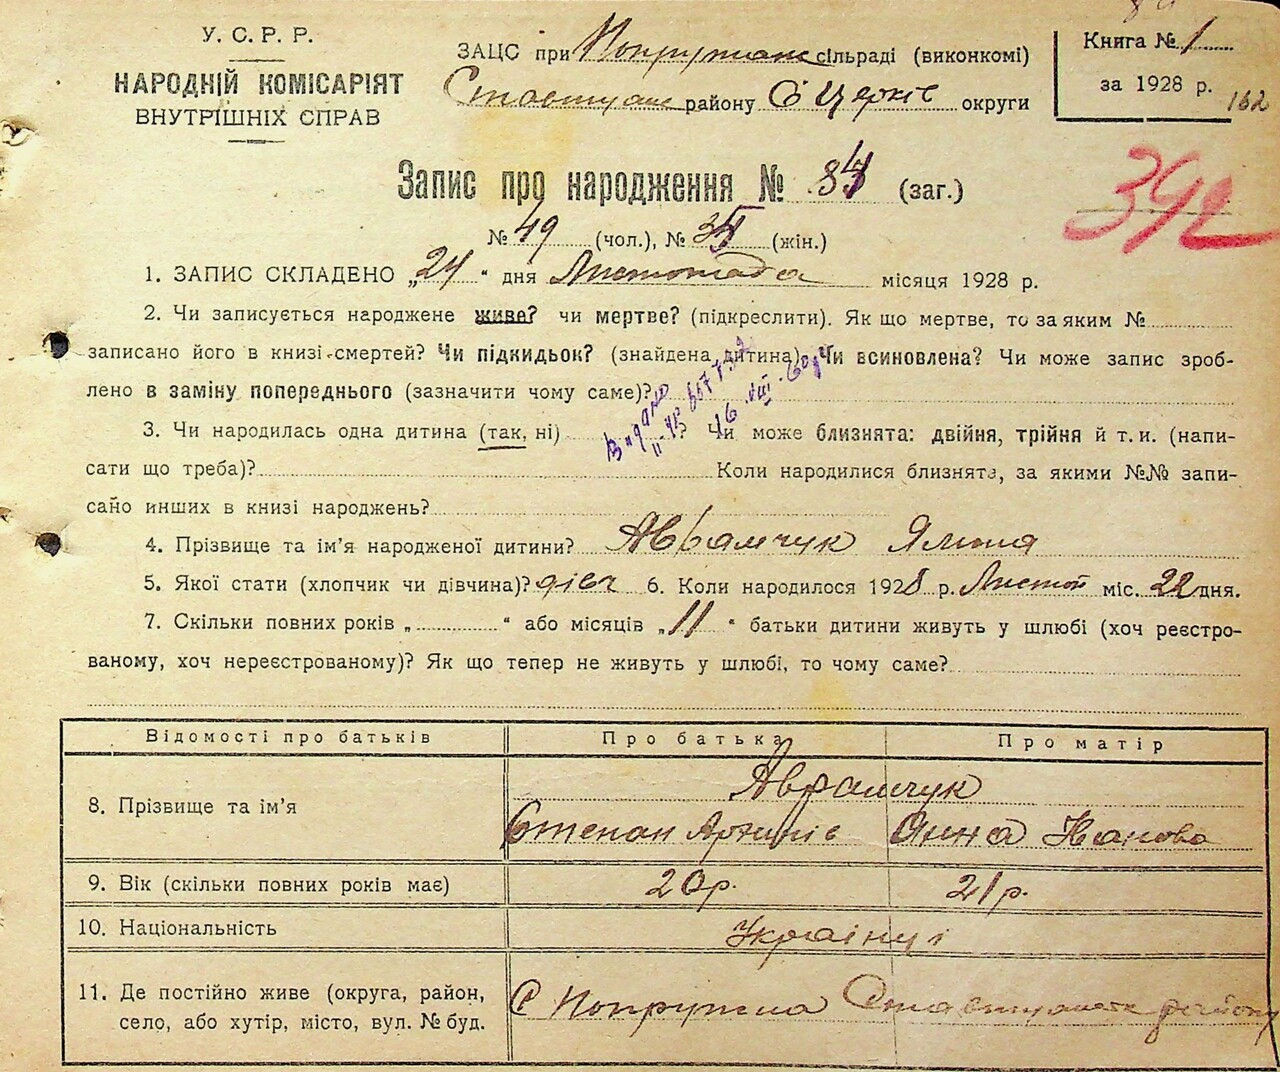 У. С. Р. Р.
НАРОДНІЙ КОМІСАРІЯТ
ВНУТРІШНІХ СПРАВ
ЗАЦС при Попружанс сільраді (виконкомі)
Ставищанс району Б Церків округи
Книга № 1
за 1928 р.
162
Запис про народження № (заг.)
392
№ 49 (чол.), № (жін.)
1. ЗАПИС СКЛАДЕНО „24" дня Листопада місяця 1928 р.
2. Чи записується народжене живе? чи мертве? (підкреслити). Як що мертве, то за яким №
записано його в книзі смертей? Чи підкидьок? (знайдена дитина) Чи всиновлена? Чи може запис зроб-
лено в заміну попереднього (зазначити чому саме)?
Видано
16 VIII 60
3. Чи народилась одна дитина (так, ні) ? Чи може близнята: двійня, трійня й т. и. (напи-
сати що треба)? Коли народилися близнята, за якими №№ запи-
сано инших в книзі народжень?
4. Прізвище та ім'я народженої дитини? Аврамчук Ялина
5. Якої стати (хлопчик чи дівчина)? дівч 6. Коли народилося 1928 р. Листоп міс. 22 дня.
7. Скільки повних років „ " або місяців „11" батьки дитини живуть у шлюбі (хоч реєстро-
ваному, хоч нереєстрованому)? Як що тепер не живуть у шлюбі, то чому саме?
Відомості про батьків Про батька Про матір
Аврамчук
8. Прізвище та ім'я
Степан Архипів Анна Іванова
9. Вік (скільки повних років має) 20 р. 21 р.
10. Національність Українці
11. Де постійно живе (округа, район, С Попружна Ставищанськ району
село, або хутір, місто, вул. № буд.